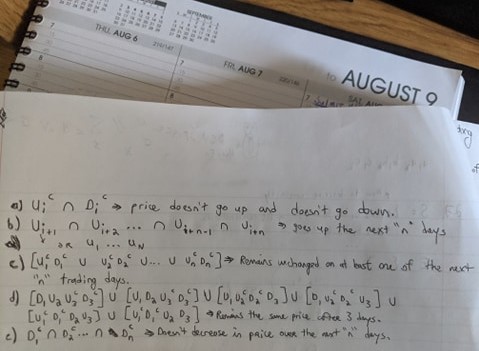 SEPTEMBER
7
THU AUG 6
219/147
8
7
FRI AUG 7
8
TO AUGUST 9
7
SAT AUG
a) Uᵢᶜ ∩ Dᵢᶜ ⇒ price doesn't go up and doesn't go down.
b) Uᵢ₊₁ ∩ Uᵢ₊₂ ... ∩ Uᵢ₊ₙ₋₁ ∩ Uᵢ₊ₙ ⇒ goes up the next "n" days
or U₁ ... UN
c) [U₁ᶜ D₁ᶜ U U₂ᶜ D₂ᶜ U ... U Uₙᶜ Dₙᶜ] ⇒ Remains unchanged on at least one of the next
"n" trading days.
d) [D₁ U₂ U₃ᶜ D₃ᶜ] U [U₁ D₂ U₃ᶜ D₃ᶜ] U [U₁ U₂ᶜ D₂ᶜ D₃] U [D₁ U₂ᶜ D₂ᶜ U₃] U
[U₁ᶜ D₁ᶜ D₂ U₃] U [U₁ᶜ D₁ᶜ U₂ D₃] ⇒ Remains the same price after 3 days.
e) D₁ᶜ ∩ D₂ᶜ ... ∩ Dₙᶜ ⇒ Doesn't decrease in price over the next "n" days.